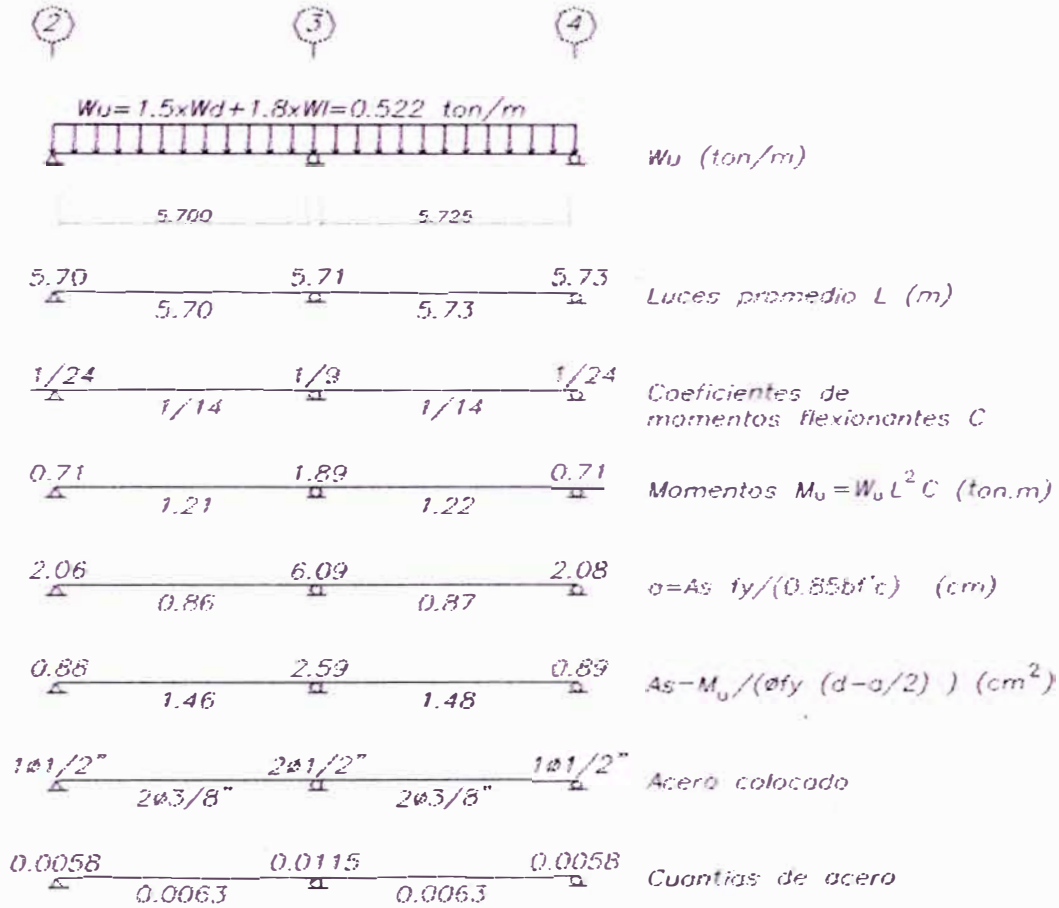 2 3 4
Wu=1.5xWd+1.8xWl=0.522 ton/m
Wu (ton/m)
5.700 5.725
5.70 5.71 5.73
5.70 5.73
Luces promedio L (m)
1/24 1/9 1/24
1/14 1/14
Coeficientes de
momentos flexionantes C
0.71 1.89 0.71
1.21 1.22
Momentos Mu=WuL²C (ton.m)
2.06 6.09 2.08
0.86 0.87
a=As fy/(0.85bf'c) (cm)
0.88 2.59 0.89
1.46 1.48
As=Mu/(øfy (d-a/2) ) (cm²)
1ø1/2" 2ø1/2" 1ø1/2"
2ø3/8" 2ø3/8"
Acero colocado
0.0058 0.0115 0.0058
0.0063 0.0063
Cuantias de acero